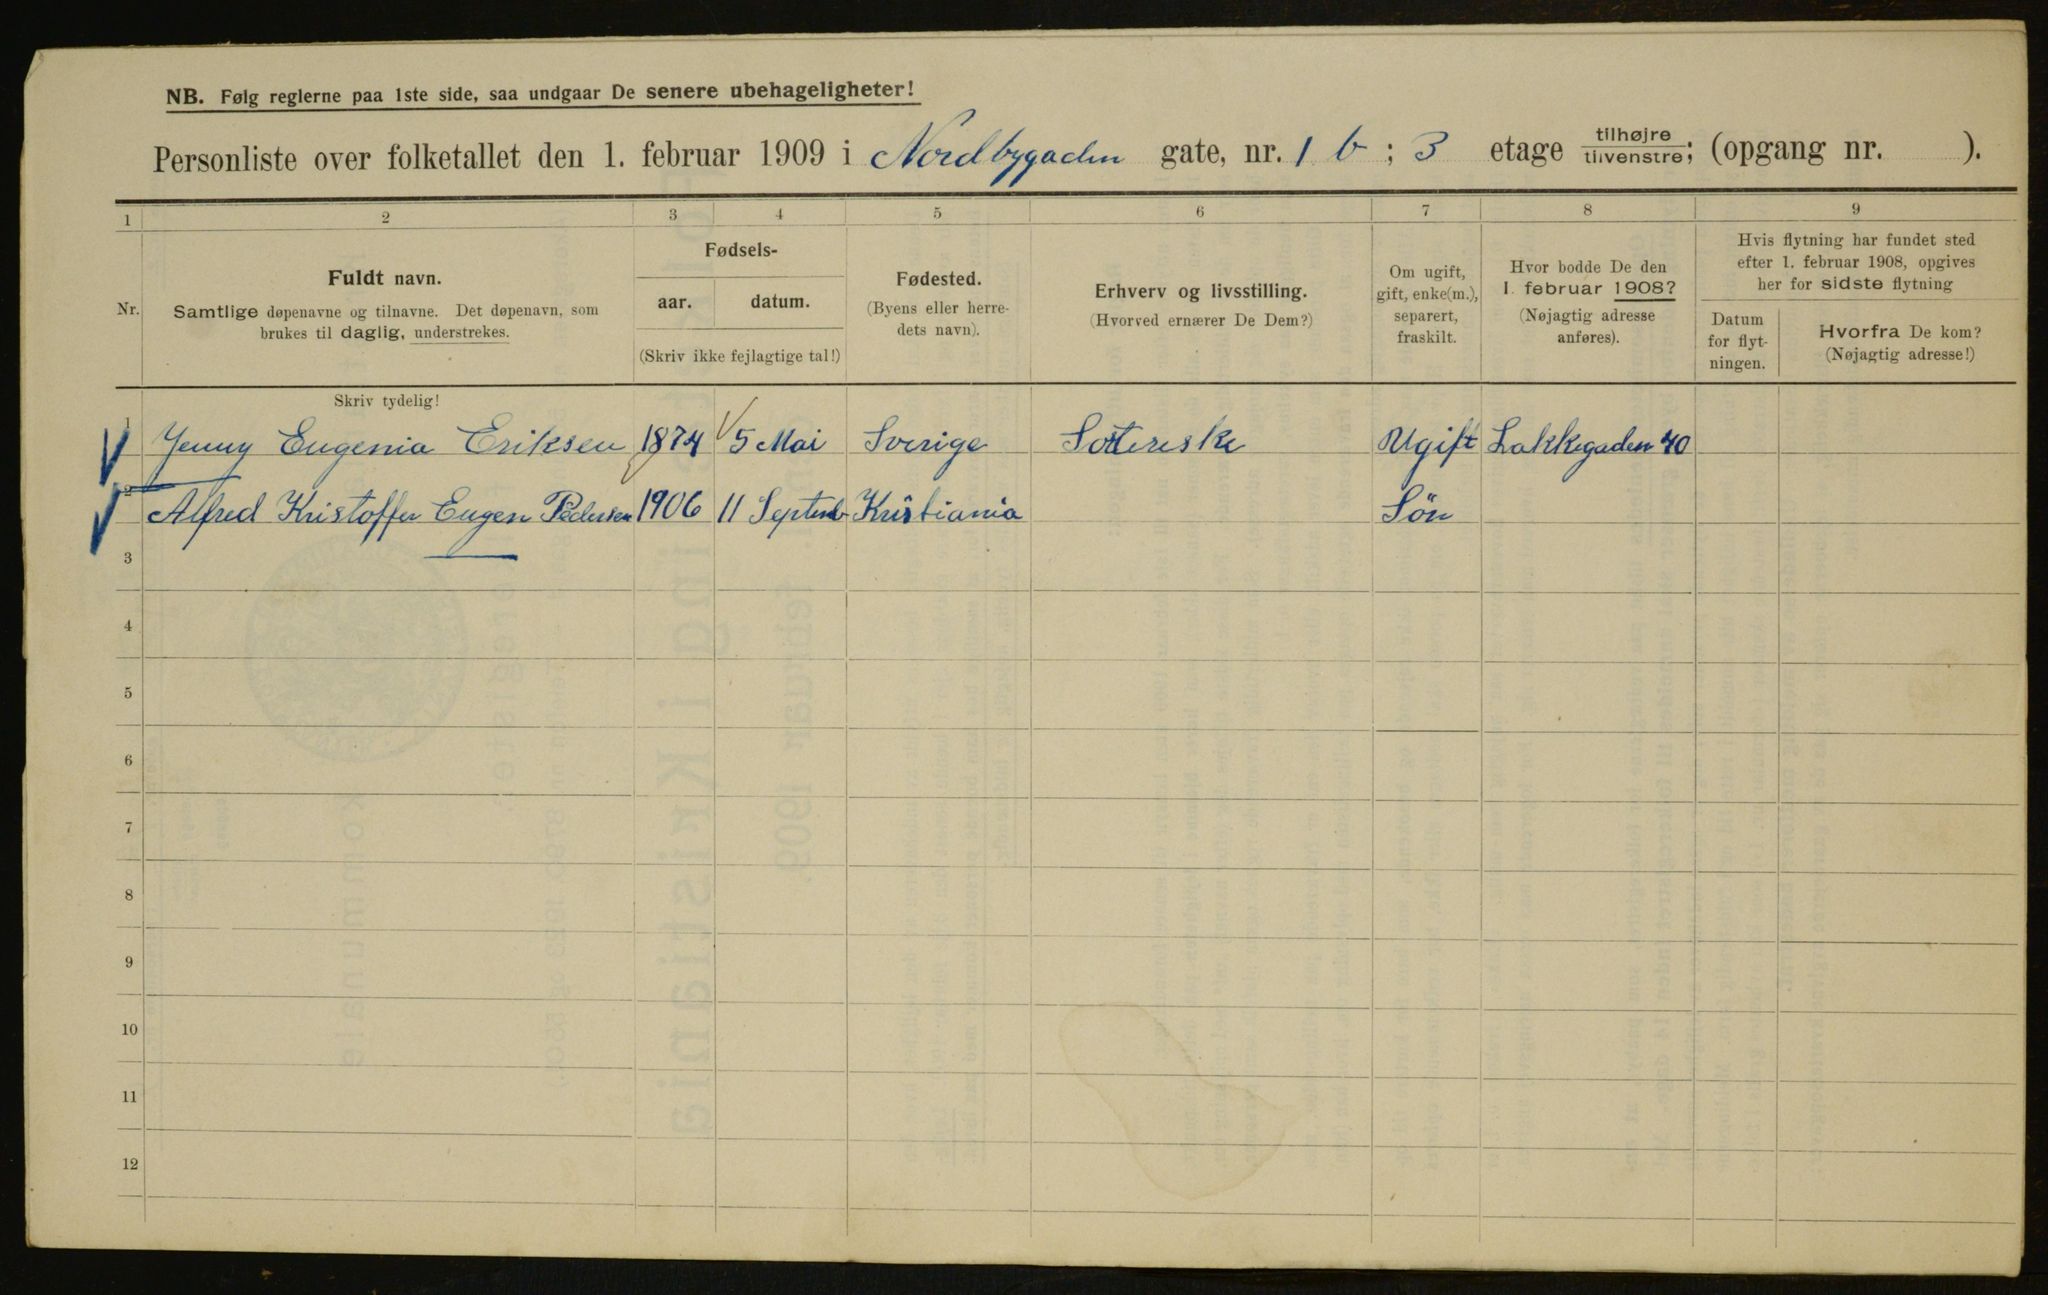 NB. Følg reglerne paa 1ste side, saa undgaar De senere ubehageligheter!
Personliste over folketallet den 1. februar 1909 i Nordbygaden gate, nr. 1 b ; 3 etage tilhøjre/tilvenstre; (opgang nr. ).
1 2 3 4 5 6 7 8 9
Nr.
Fuldt navn.
Samtlige døpenavne og tilnavne. Det døpenavn, som
brukes til daglig, understrekes.
Fødsels-
aar. datum.
(Skriv ikke fejlagtige tal!)
Fødested.
(Byens eller herre-
dets navn).
Erhverv og livsstilling.
(Hvorved ernærer De Dem?)
Om ugift,
gift, enke(m.),
separert,
fraskilt.
Hvor bodde De den
1. februar 1908?
(Nøjagtig adresse
anføres).
Hvis flytning har fundet sted
efter 1. februar 1908, opgives
her for sidste flytning
Datum
for flyt-
ningen.
Hvorfra De kom?
(Nøjagtig adresse!)
Skriv tydelig!
1 Jenny Eugenia Eriksen 1874 5 Mai Sverige Sottereske Ugift Lakkegaden 40
2 Alfred Kristoffer Eugen Pedersen 1906 11 Septemb Kristiania Sön
3
4
5
6
7
8
9
10
11
12